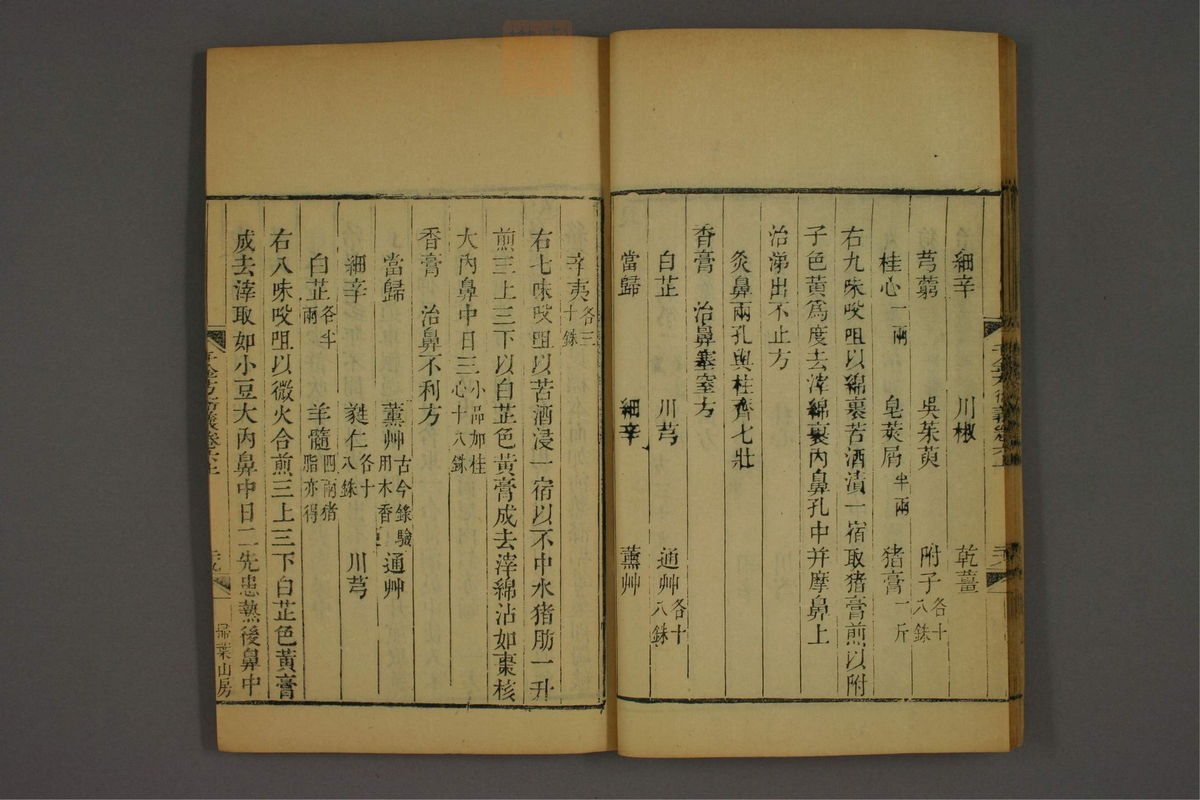 細辛 川椒 乾薑
芎藭 吳茱萸 附子各十八銖
桂心一兩 皂莢屑半兩 猪膏一斤
右九味㕮咀以綿裹苦酒漬一宿取猪膏煎以附
子色黃爲度去滓綿裹內鼻孔中并摩鼻上
治涕出不止方
灸鼻兩孔與柱齊七壯
香膏 治鼻塞窒方
白芷 川芎 通艸各十八銖
當歸 細辛 薰艸
辛夷各三十銖
右七味㕮咀以苦酒浸一宿以不中水猪肪一升
煎三上三下以白芷色黃膏成去滓綿沾如棗核
大內鼻中日三小品加桂心十八銖
香膏 治鼻不利方
當歸 薰艸古今錄驗用木香 通艸
細辛 蕤仁各十八銖 川芎
白芷各半兩 羊髓四兩猪脂亦得
右八味㕮咀以微火合煎三上三下白芷色黃膏
成去滓取如小豆大內鼻中日二先患熱後鼻中
千金方衍義卷六上
掃葉山房